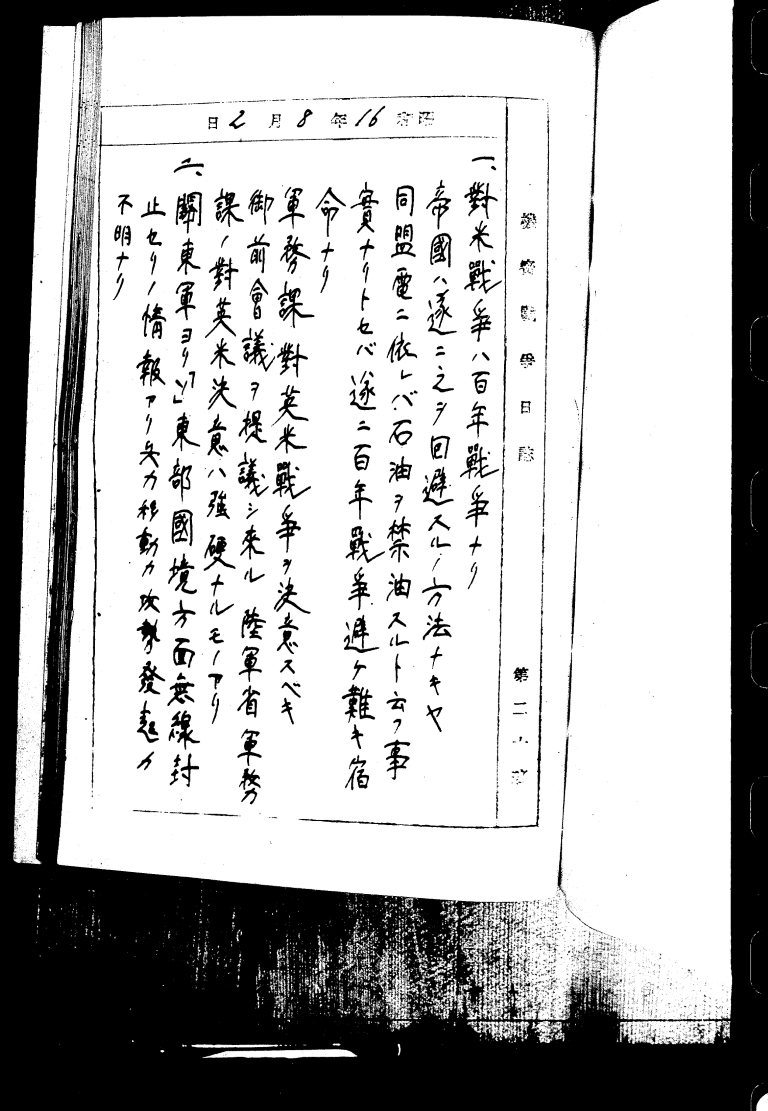 機密戰爭日誌
第二十班
昭和16年8月2日
一、對米戰爭ハ百年戰爭ナリ
帝國ハ遂ニ之ヲ回避スルノ方法ナキヤ
同盟電ニ依レバ石油ヲ禁油スルト云フ事
實ナリトセバ遂ニ百年戰爭避ケ難キ宿
命ナリ
軍務課對英米戰爭ヲ決意スベキ
御前會議ヲ提議シ來ル 陸軍省軍務
課ノ對英米決意ハ強硬ナルモノアリ
二、關東軍ヨリ「ソ」東部國境方面無線封
止セリノ情報アリ兵力移動カ攻勢發起カ
不明ナリ